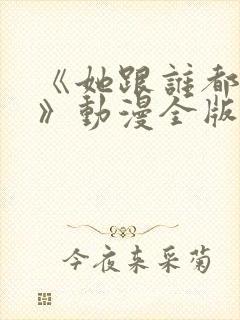 《她跟誰都
》動漫全版
今夜来采菊